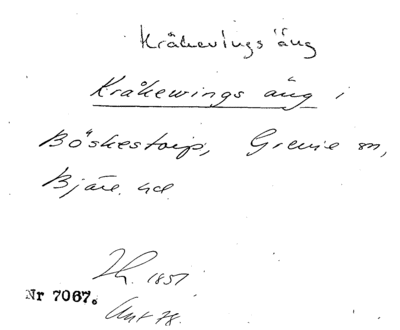 Kråkevings äng
Kråkewings äng i
Böskestorp, Grevie sn,
Bjäre hd
1857
Nr 7067.
Ant 78.